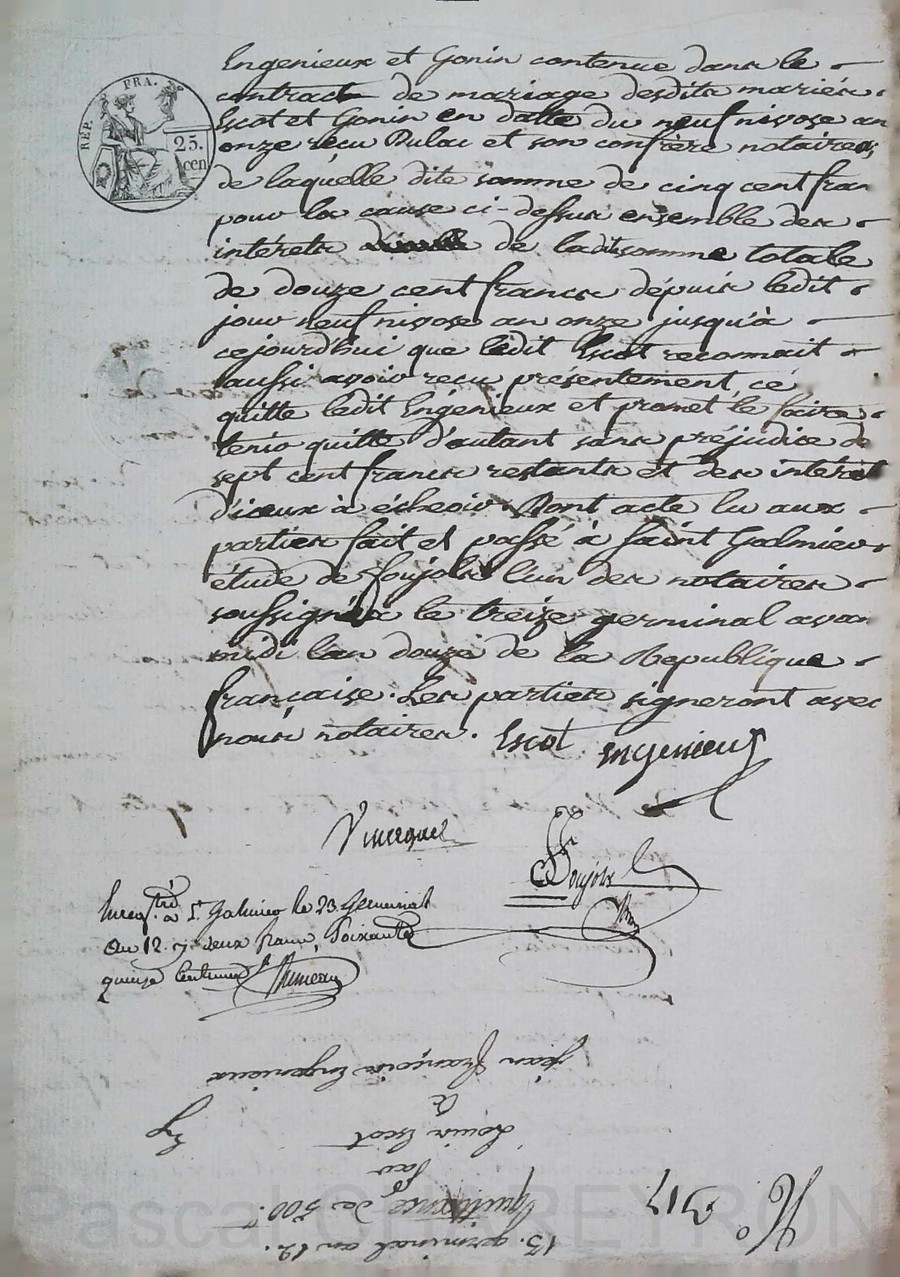 REP. FRA.
25.
cen
Engenieux et Gonin contenue dans le
contract de mariage desdits mariés
Escot et Gonin en datte du neuf nivose an
onze reçu Dulac et son confrère notaires,
de laquelle dite somme de cinq cent fran
pour les cause ci-dessus ensemble des
intérêts de laditsomme totale
de douze cent francs dépuis ledit
jour neuf nivose an onze jusqu'à
cejourd'hui que ledit Escot reconnait
aussi avoir reçu présentement, ce
quitte ledit Engénieux et promet le faire
tenir quitte d'autant sans préjudice de
sept cent francs restants et des intérêt
d'iceux à écheoir. Dont acte lu aux
parties fait et passé à Saint Galmier
étude de Soujols l'un des notaires
soussignés le treize germinal avan
midi l'an douze de la Republique
française. Les parties signeront avec
nous notaires. Escot Engenieux
Soujols
Enregtré à St. Galmier le 23. Germinal
an 12. r. deux francs, soixante
quinze centimes
Jean François Engenieux
à
Louis Escot
par
quittance de 500 f.
13. germinal an 12.
No. 317
Pascal CHAREYRON